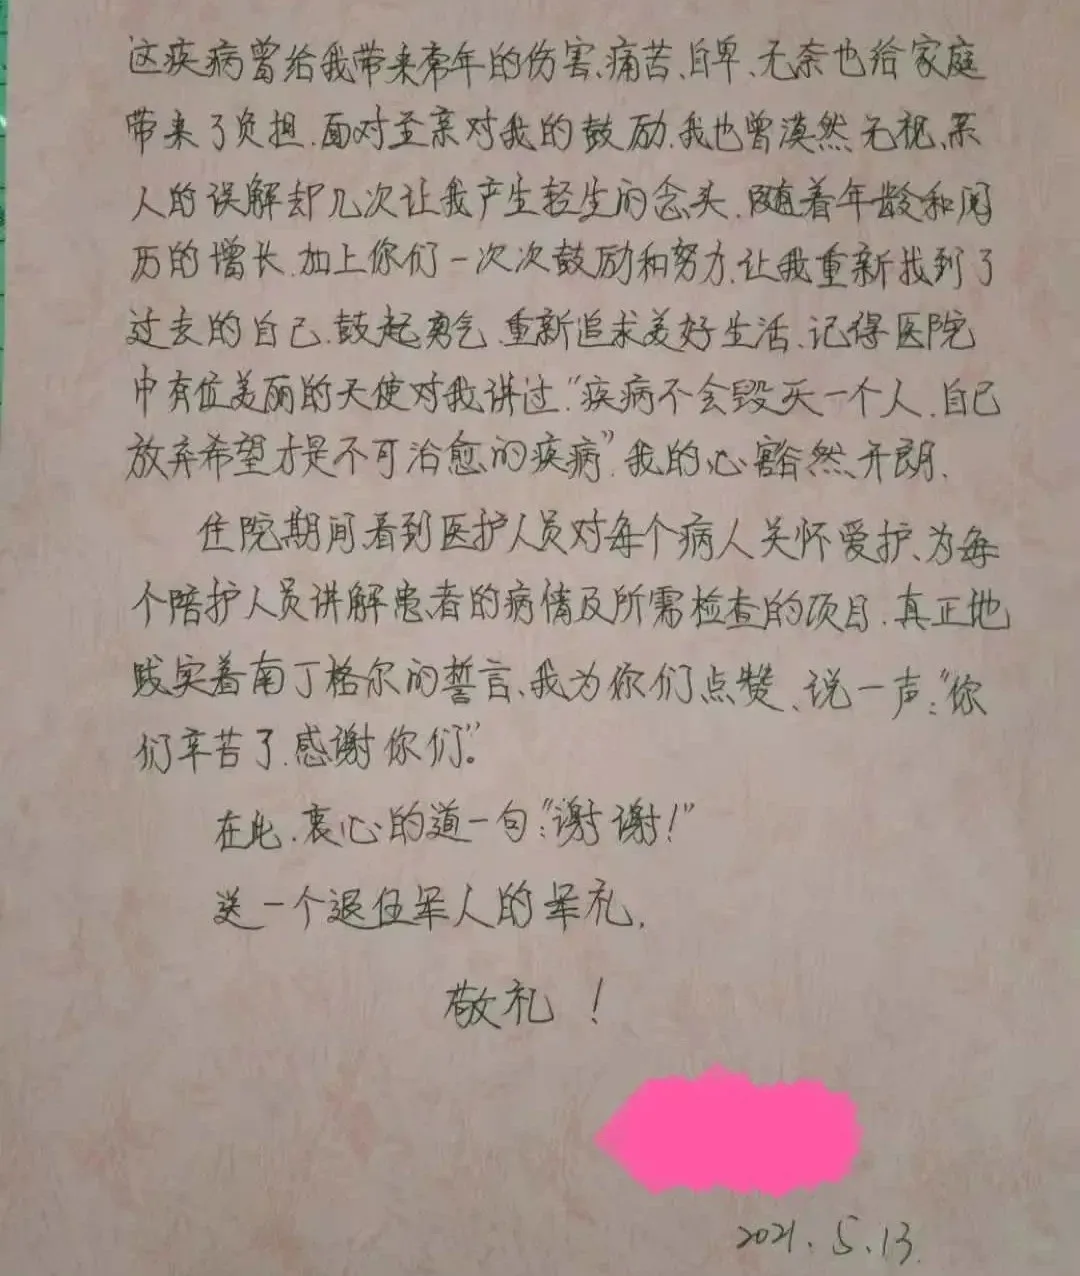 这疾病曾给我带来常年的伤害、痛苦、自卑、无奈也给家庭
带来了负担.面对至亲对我的鼓励.我也曾漠然无视、亲
人的误解却几次让我产生轻生的念头.随着年龄和阅
历的增长.加上你们一次次鼓励和努力.让我重新找到了
过去的自己.鼓起勇气.重新追求美好生活.记得医院
中有位美丽的天使对我讲过“疾病不会毁灭一个人.自己
放弃希望才是不可治愈的疾病”.我的心豁然开朗.
住院期间.看到医护人员对每个病人关怀爱护、为每
个陪护人员讲解患者的病情及所需检查的项目.真正地
践实着南丁格尔的誓言、我为你们点赞、说一声:“你
们辛苦了.感谢你们”。
在此.衷心的道一句:“谢谢!”
送一个退伍军人的军礼.
敬礼!
2021.5.13.